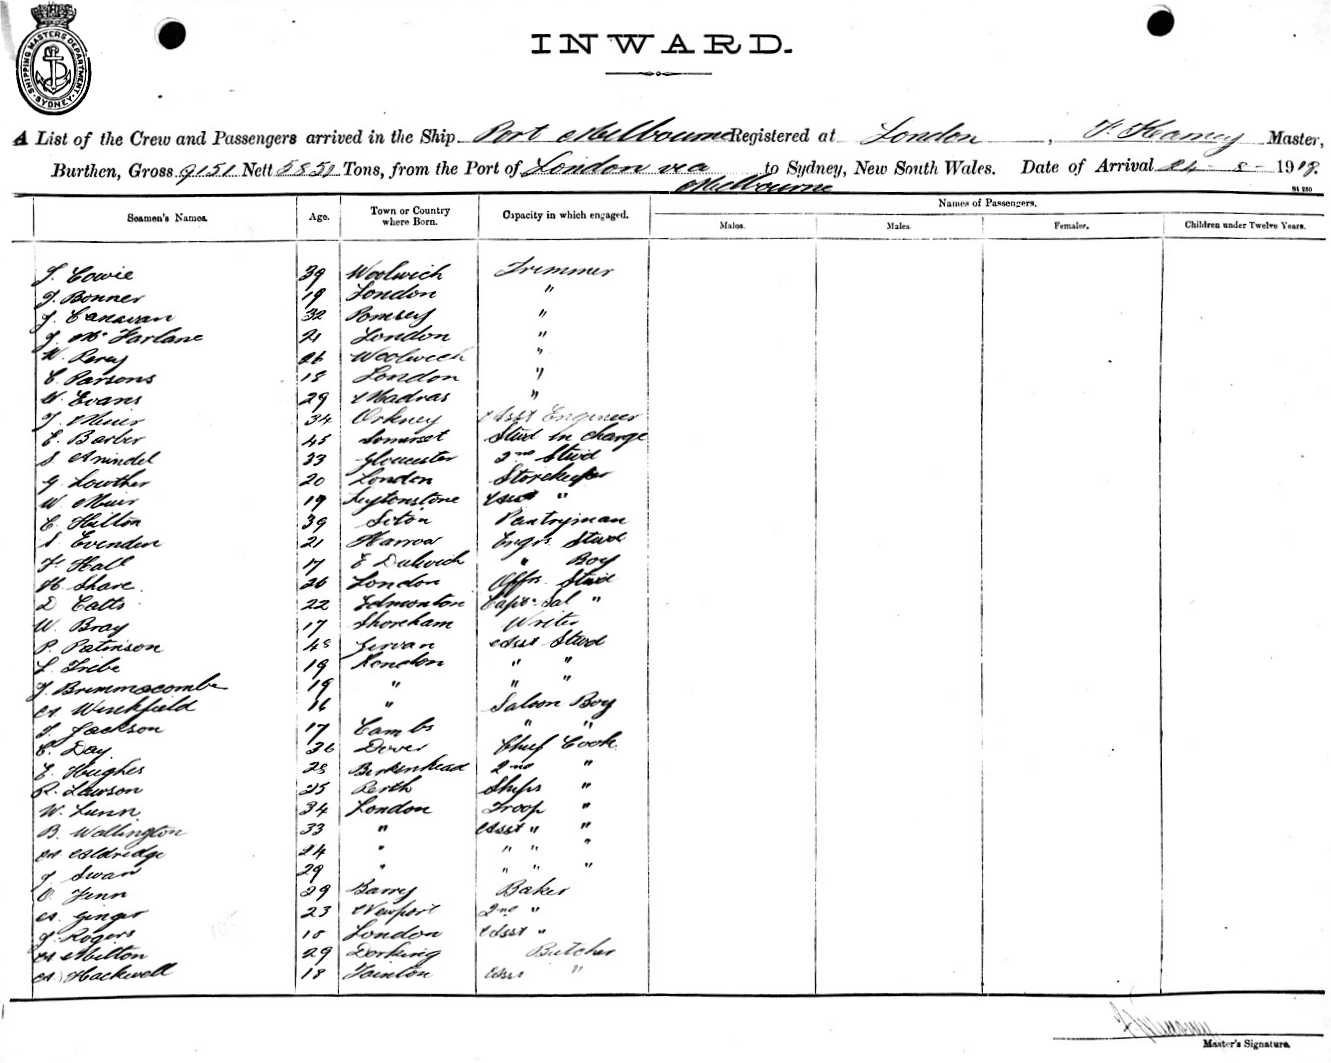 SHIPPING MASTERS DEPARTMENT. SYDNEY.
INWARD.
A List of the Crew and Passengers arrived in the Ship Port Melbourne Registered at London, Master,
Burthen, Gross 9151 Nett Tons, from the Port of London via Melbourne to Sydney, New South Wales. Date of Arrival 24-8-1918.
Seamen's Names. Age. Town or Country where Born. Capacity in which engaged. Names of Passengers.
Males. Males. Females. Children under Twelve Years.
J. Cowie 39 Woolwich Trimmer
J. Bonner 19 London "
J. Canavan 32 Romsey "
J. Mc Farlane 21 London "
W. Percy 26 Woolwich "
C. Parsons 18 London "
W. Evans 29 Madras "
J. 34 Orkney Asst Engineer
E. Barber 45 Somerset Stwd in charge
S. Arundel 33 Gloucester 2nd Stwd
G. Lowther 20 London Storekeeper
W. Muir 19 Leytonstone Asst "
C. Hilton 39 Pantryman
S. Evenden 21 Harrow Engrs Stwd
F. Hall 17 E Dulwich " Boy
H. Share 26 London Offrs Stwd
D Catts 22 Edmonton Capts Sal "
W. Bray 17 Shoreham Writer
P. Patinson 48 Girvan Asst Stwd
L. Tribe 19 London " "
J. Brimmacombe 19 " " "
A Winkfield 16 " Saloon Boy
J. Jackson 17 Cambs " "
C. Day 36 Dover Chief Cook
E. Hughes 28 Birkenhead 2nd "
R. Lawson 25 Perth Ships "
W. Lunn 34 London Troop "
B. Wallington 33 " Asst " "
A Aldredge 24 " " " "
J Swan 29 " " "
O. Fenn 29 Barry Baker
A. Ginger 23 Newport 2nd "
J. Rogers 18 London Asst "
A Milton 29 Dorking Butcher
A Hackwell 18 Asst "
Master's Signature.